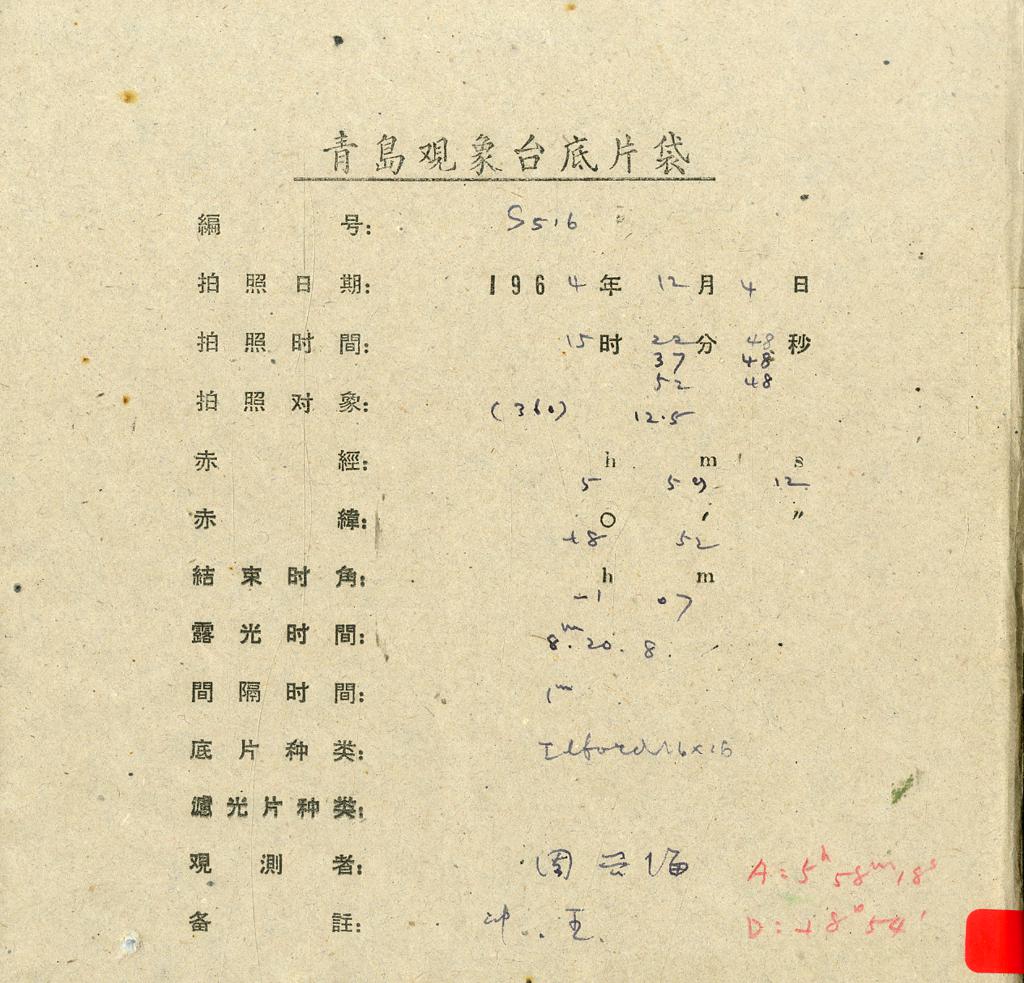 青島观象台底片袋
編号: S516
拍照日期: 1964年12月4日
拍照时間: 15时22分48秒
37 48
52 48
拍照对象: (360) 12.5
赤經: h m s
5 59 12
赤緯: ○ ′ ″
+8 52
結束时角: h m
-1 07
露光时間: 8m. 20. 8.
間隔时間: 1m
底片种类: Ilford 16×16
濾光片种类:
观測者: 周
A: 5h 58m 18s
备註: 冲.. 王.
D: +8° 54′